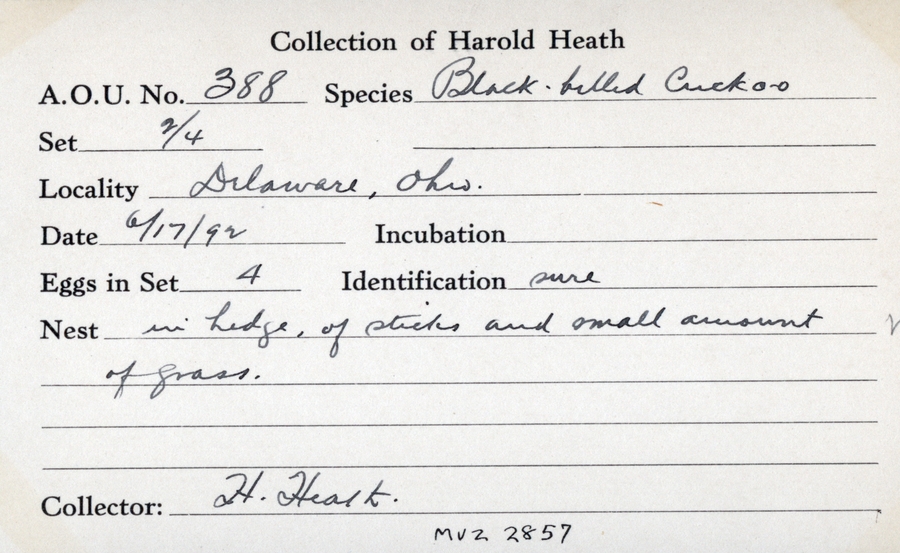 Collection of Harold Heath
A.O.U. No. 388 Species Black-billed Cuckoo
Set 2/4
Locality Delaware, Ohio.
Date 6/17/92 Incubation
Eggs in Set 4 Identification sure
Nest in hedge, of sticks and small amount
of grass.
Collector: H. Heath.
MVZ 2857